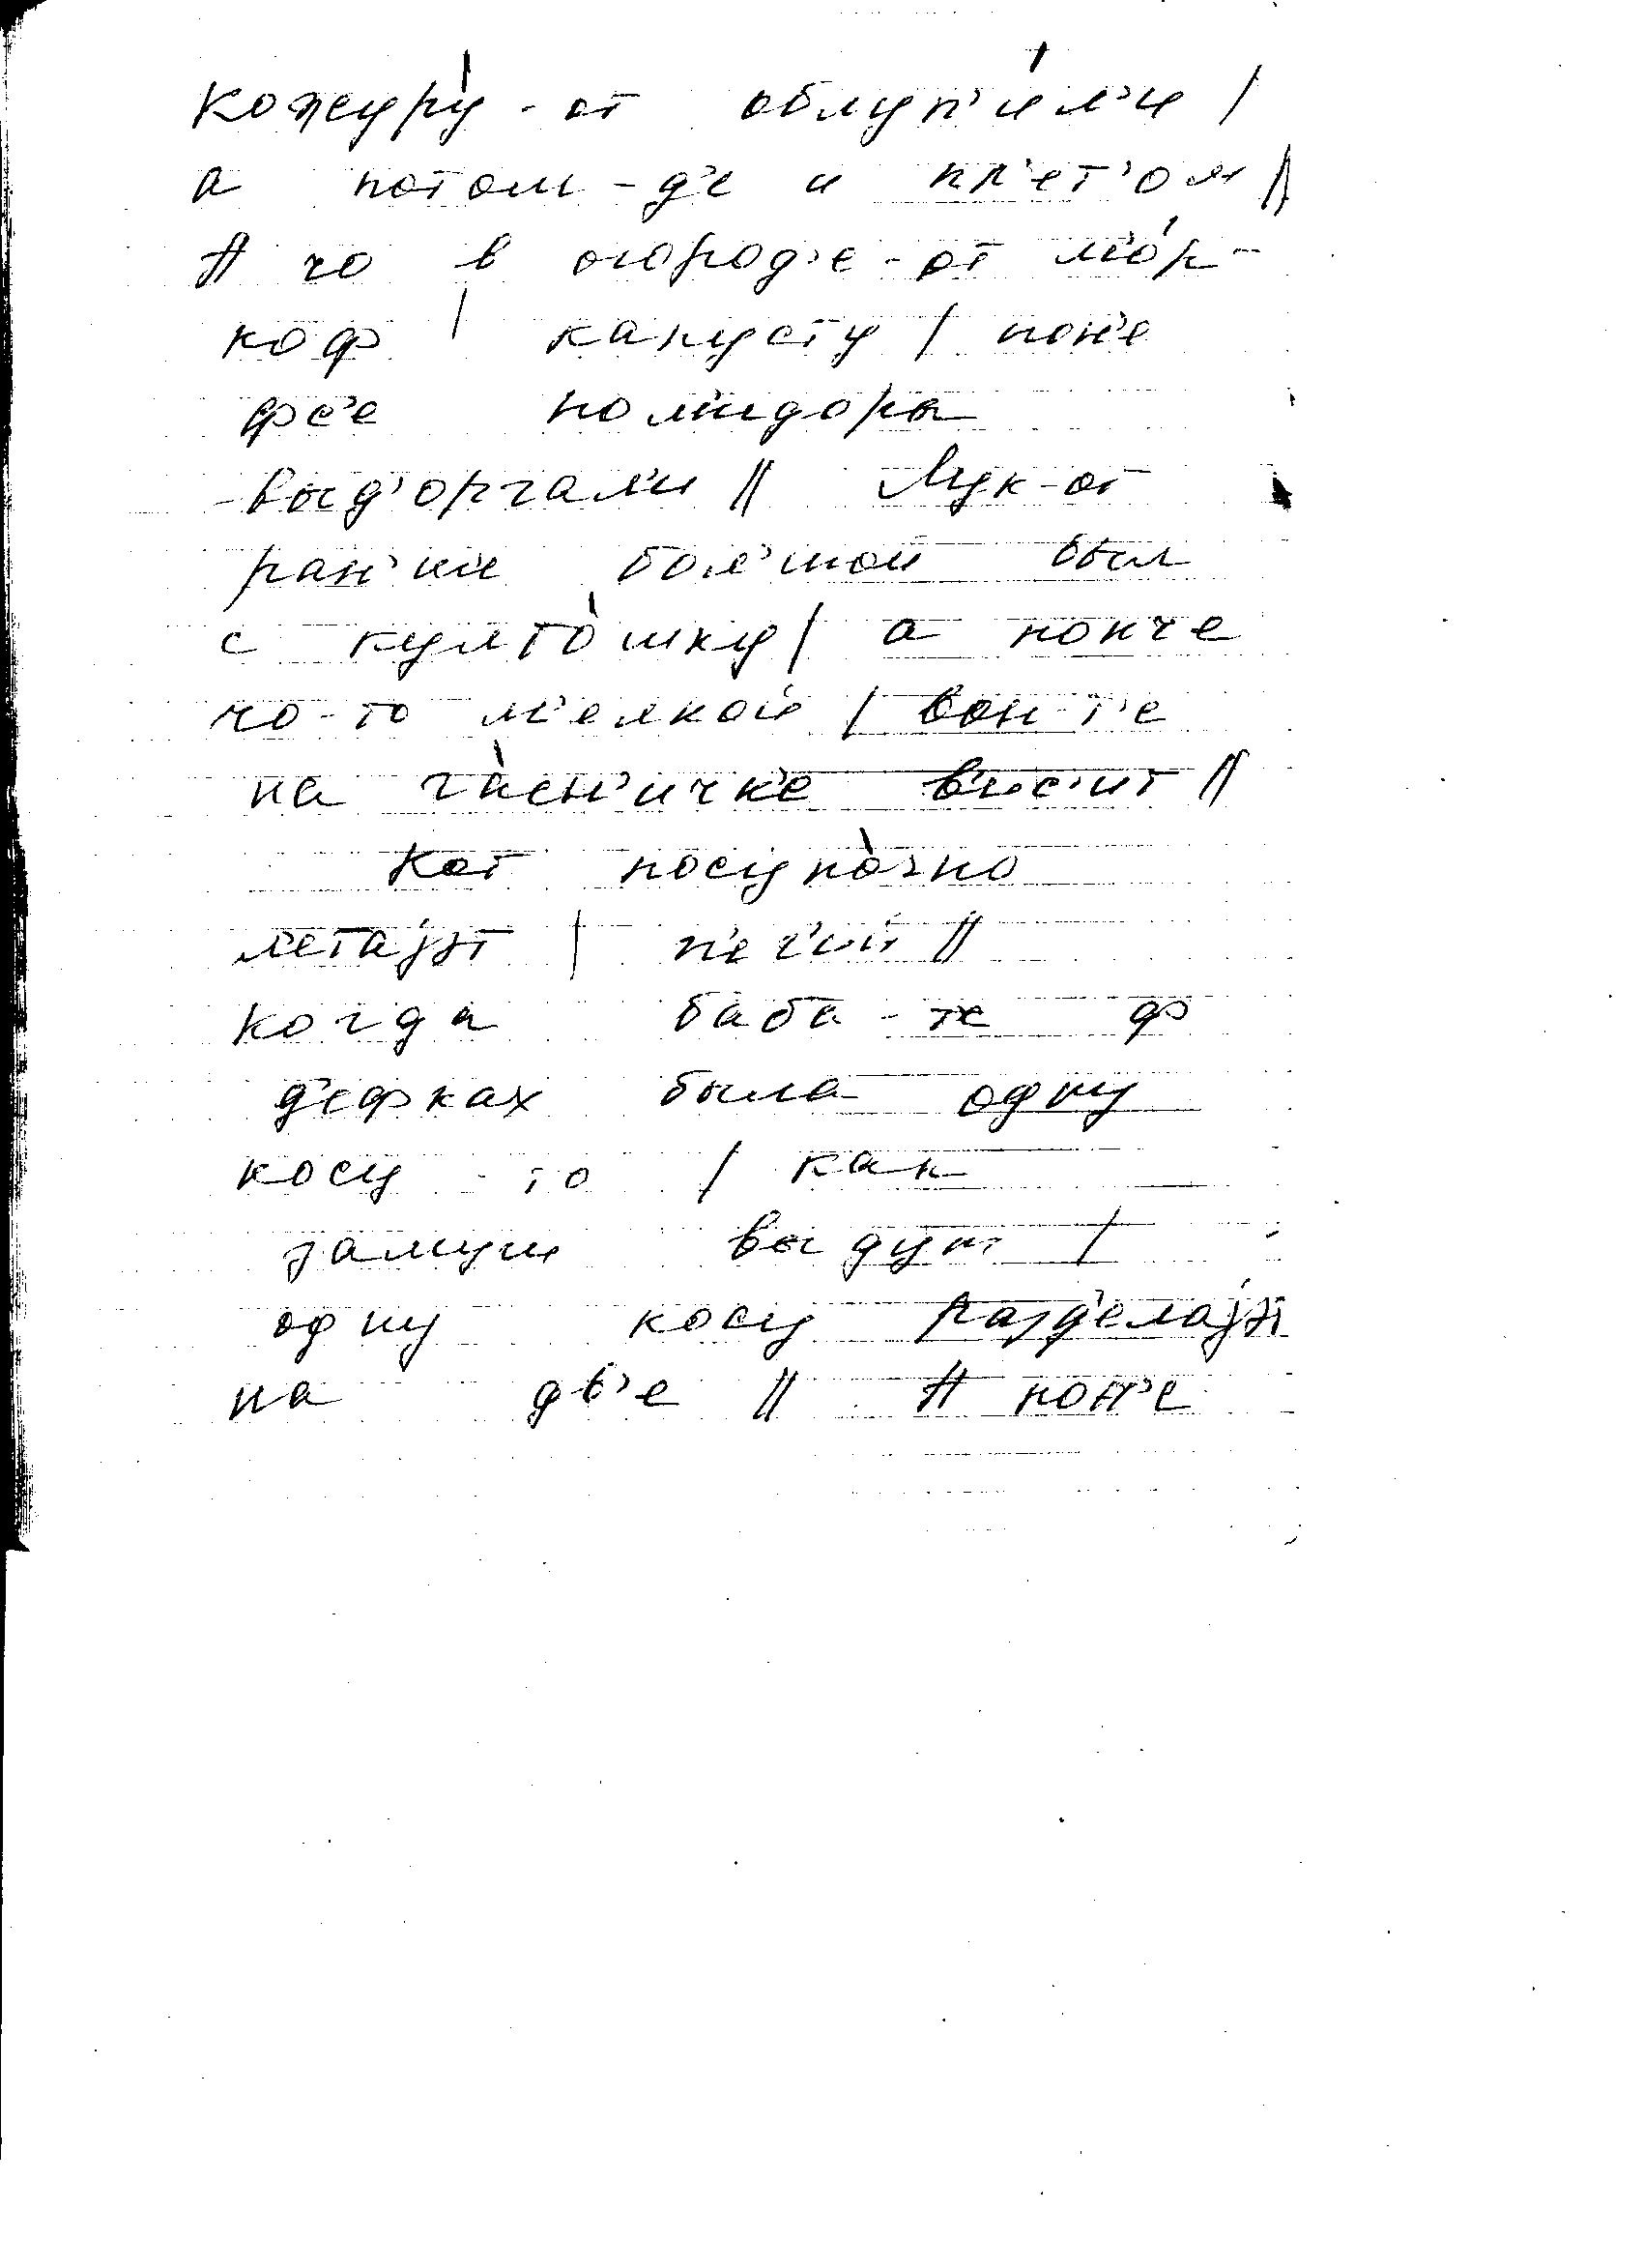 кожуру́-от облуп'и́л'и /
а потом-д'е и пл'ет'ом //
А чо в огород'е-от м'о́р-
коф / капусту / нон'е
фс'е пом'идоры
выд'оргал'и // Лук-от
ран'ше бол'шой был
с култо́шку / а нонче
чо-то м'елкой / вон-т'е
на га́сн'ичк'е в'ис'ит //
Кот посту́почно
л'етаjэт / п'ег'ий //
когда баба-те ф
д'ефках была одну
косу-то / как
замуш выдут /
одну косу разд'елаjэт
на дв'е // А нон'е